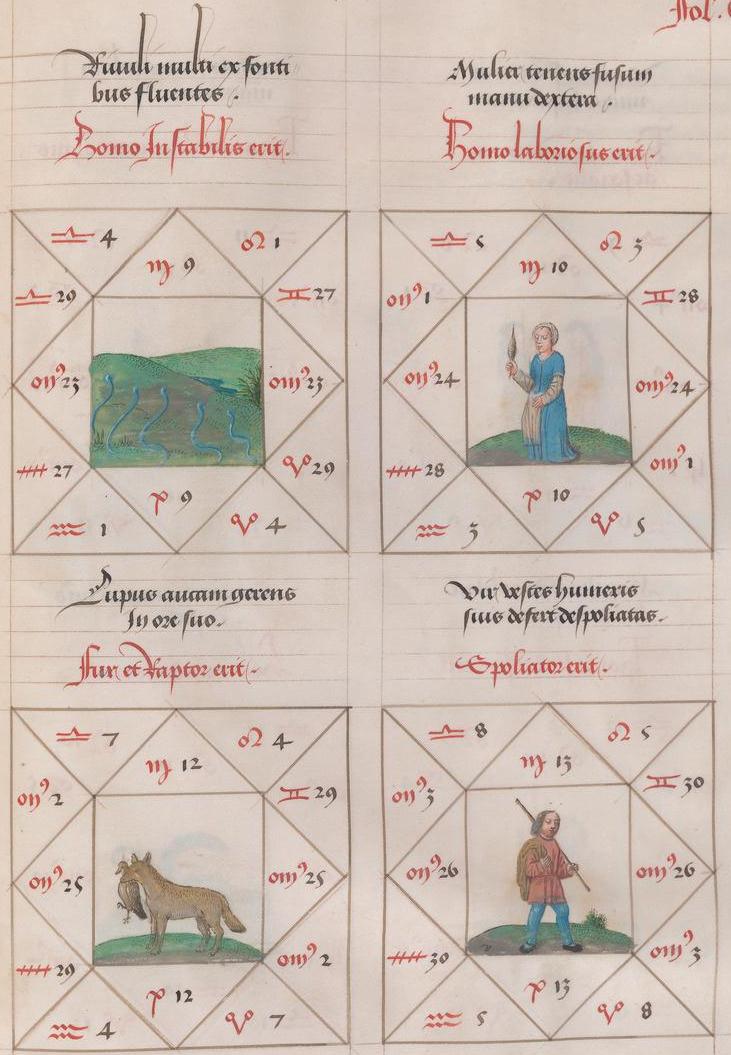 Fol.
Riuuli multi ex fonti
bus fluentes.
Homo Instabilis erit.
♎ 4
♍ 9
♌ 1
♎ 29
♊ 27
23
23
27
29
1
9
4
Mulier tenens fusum
manu dextera.
Homo laboriosus erit.
♎ 5
♍ 10
♌ 3
1
♊ 28
24
24
28
1
3
10
5
Lupus aucam gerens
In ore suo.
Fur et Raptor erit.
♎ 7
♍ 12
♌ 4
2
♊ 29
25
25
29
2
4
12
7
Vir vestes humeris
suis defert despoliatas.
Spoliator erit.
♎ 8
♍ 13
♌ 5
3
♊ 30
26
26
30
3
5
13
8